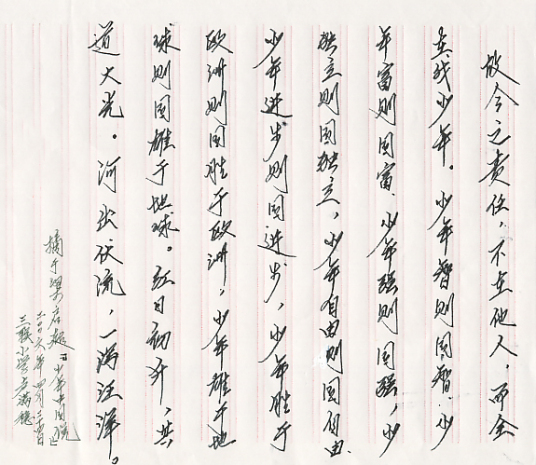 故今之责任，不在他人，而全
在我少年。少年智则国智，少
年富则国富，少年强则国强，少年
独立则国独立，少年自由则国自由，
少年进步则国进步，少年胜于
欧洲则国胜于欧洲，少年雄于地
球则国雄于地球。红日初升，其
道大光。河出伏流，一泻汪洋。
摘于梁启超《少年中国说》
二〇〇六年四月二十四日
小学方满聪